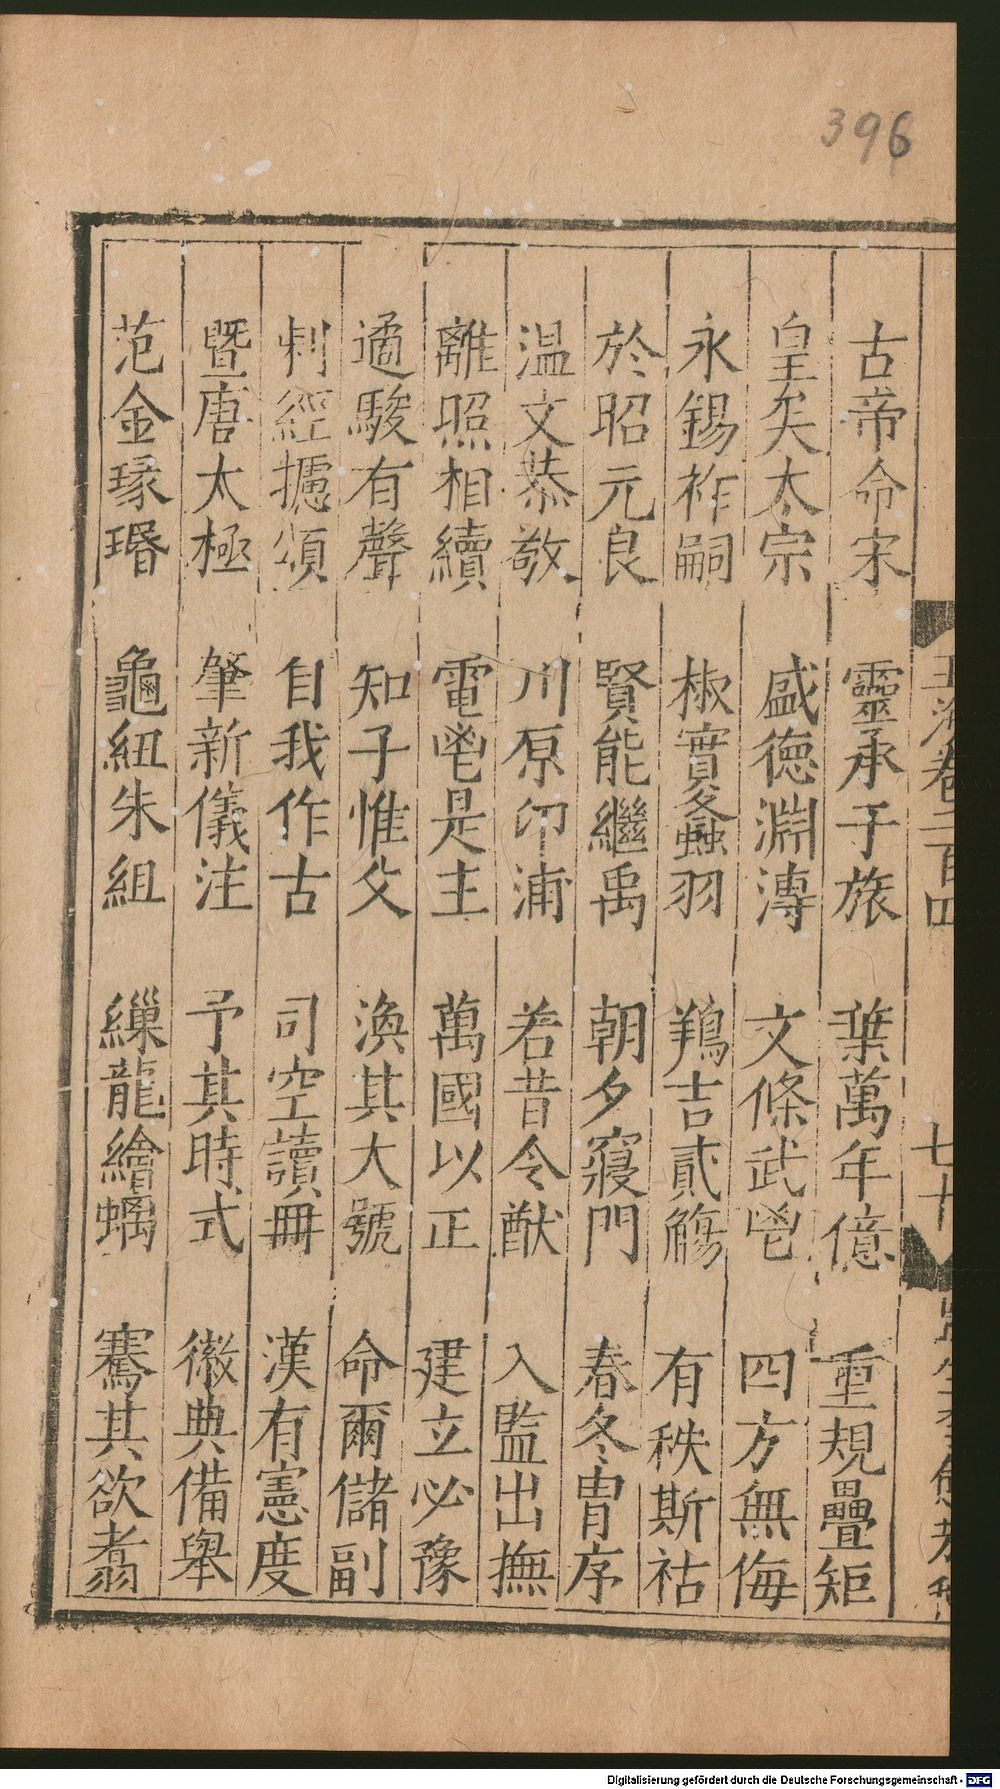 396
古帝命宋　靈承子旅　葉萬年億　重規疊矩
皇矣太宗　盛德淵溥　文條武鬯　四方無侮
永錫祚嗣　椒實螽羽　鴹吉貳觴　有秩斯祜
於昭元良　賢能繼禹　朝夕寢門　春冬胄序
温文恭敬　川原卬浦　若昔令猷　入監出撫
離照相續　電鬯是主　萬國以正　建立必豫
遹駿有聲　知子惟父　渙其大號　命爾儲副
刺經攄頌　自我作古　司空讀冊　漢有憲度
暨唐太極　肇新儀注　予其時式　徽典備舉
范金瑑瑉　龜紐朱組　繅龍繪螭　騫其欲翥
玉海卷二百四　七十
Digitalisierung gefördert durch die Deutsche Forschungsgemeinschaft - DFG